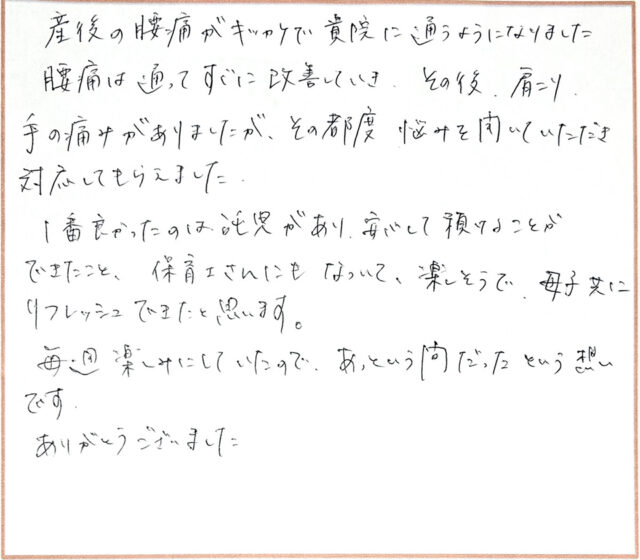 産後の腰痛がキッカケで貴院に通うようになりました
腰痛は通ってすぐに改善していき、その後、肩こり、
手の痛みがありましたが、その都度 悩みを聞いていただき
対応してもらえました。
1番良かったのは託児があり、安心して預けることが
できたこと、保育士さんにもなついて、楽しそうで、母子共に
リフレッシュできたと思います。
毎週楽しみにしていたので、あっという間だったという想い
です。
ありがとうございました